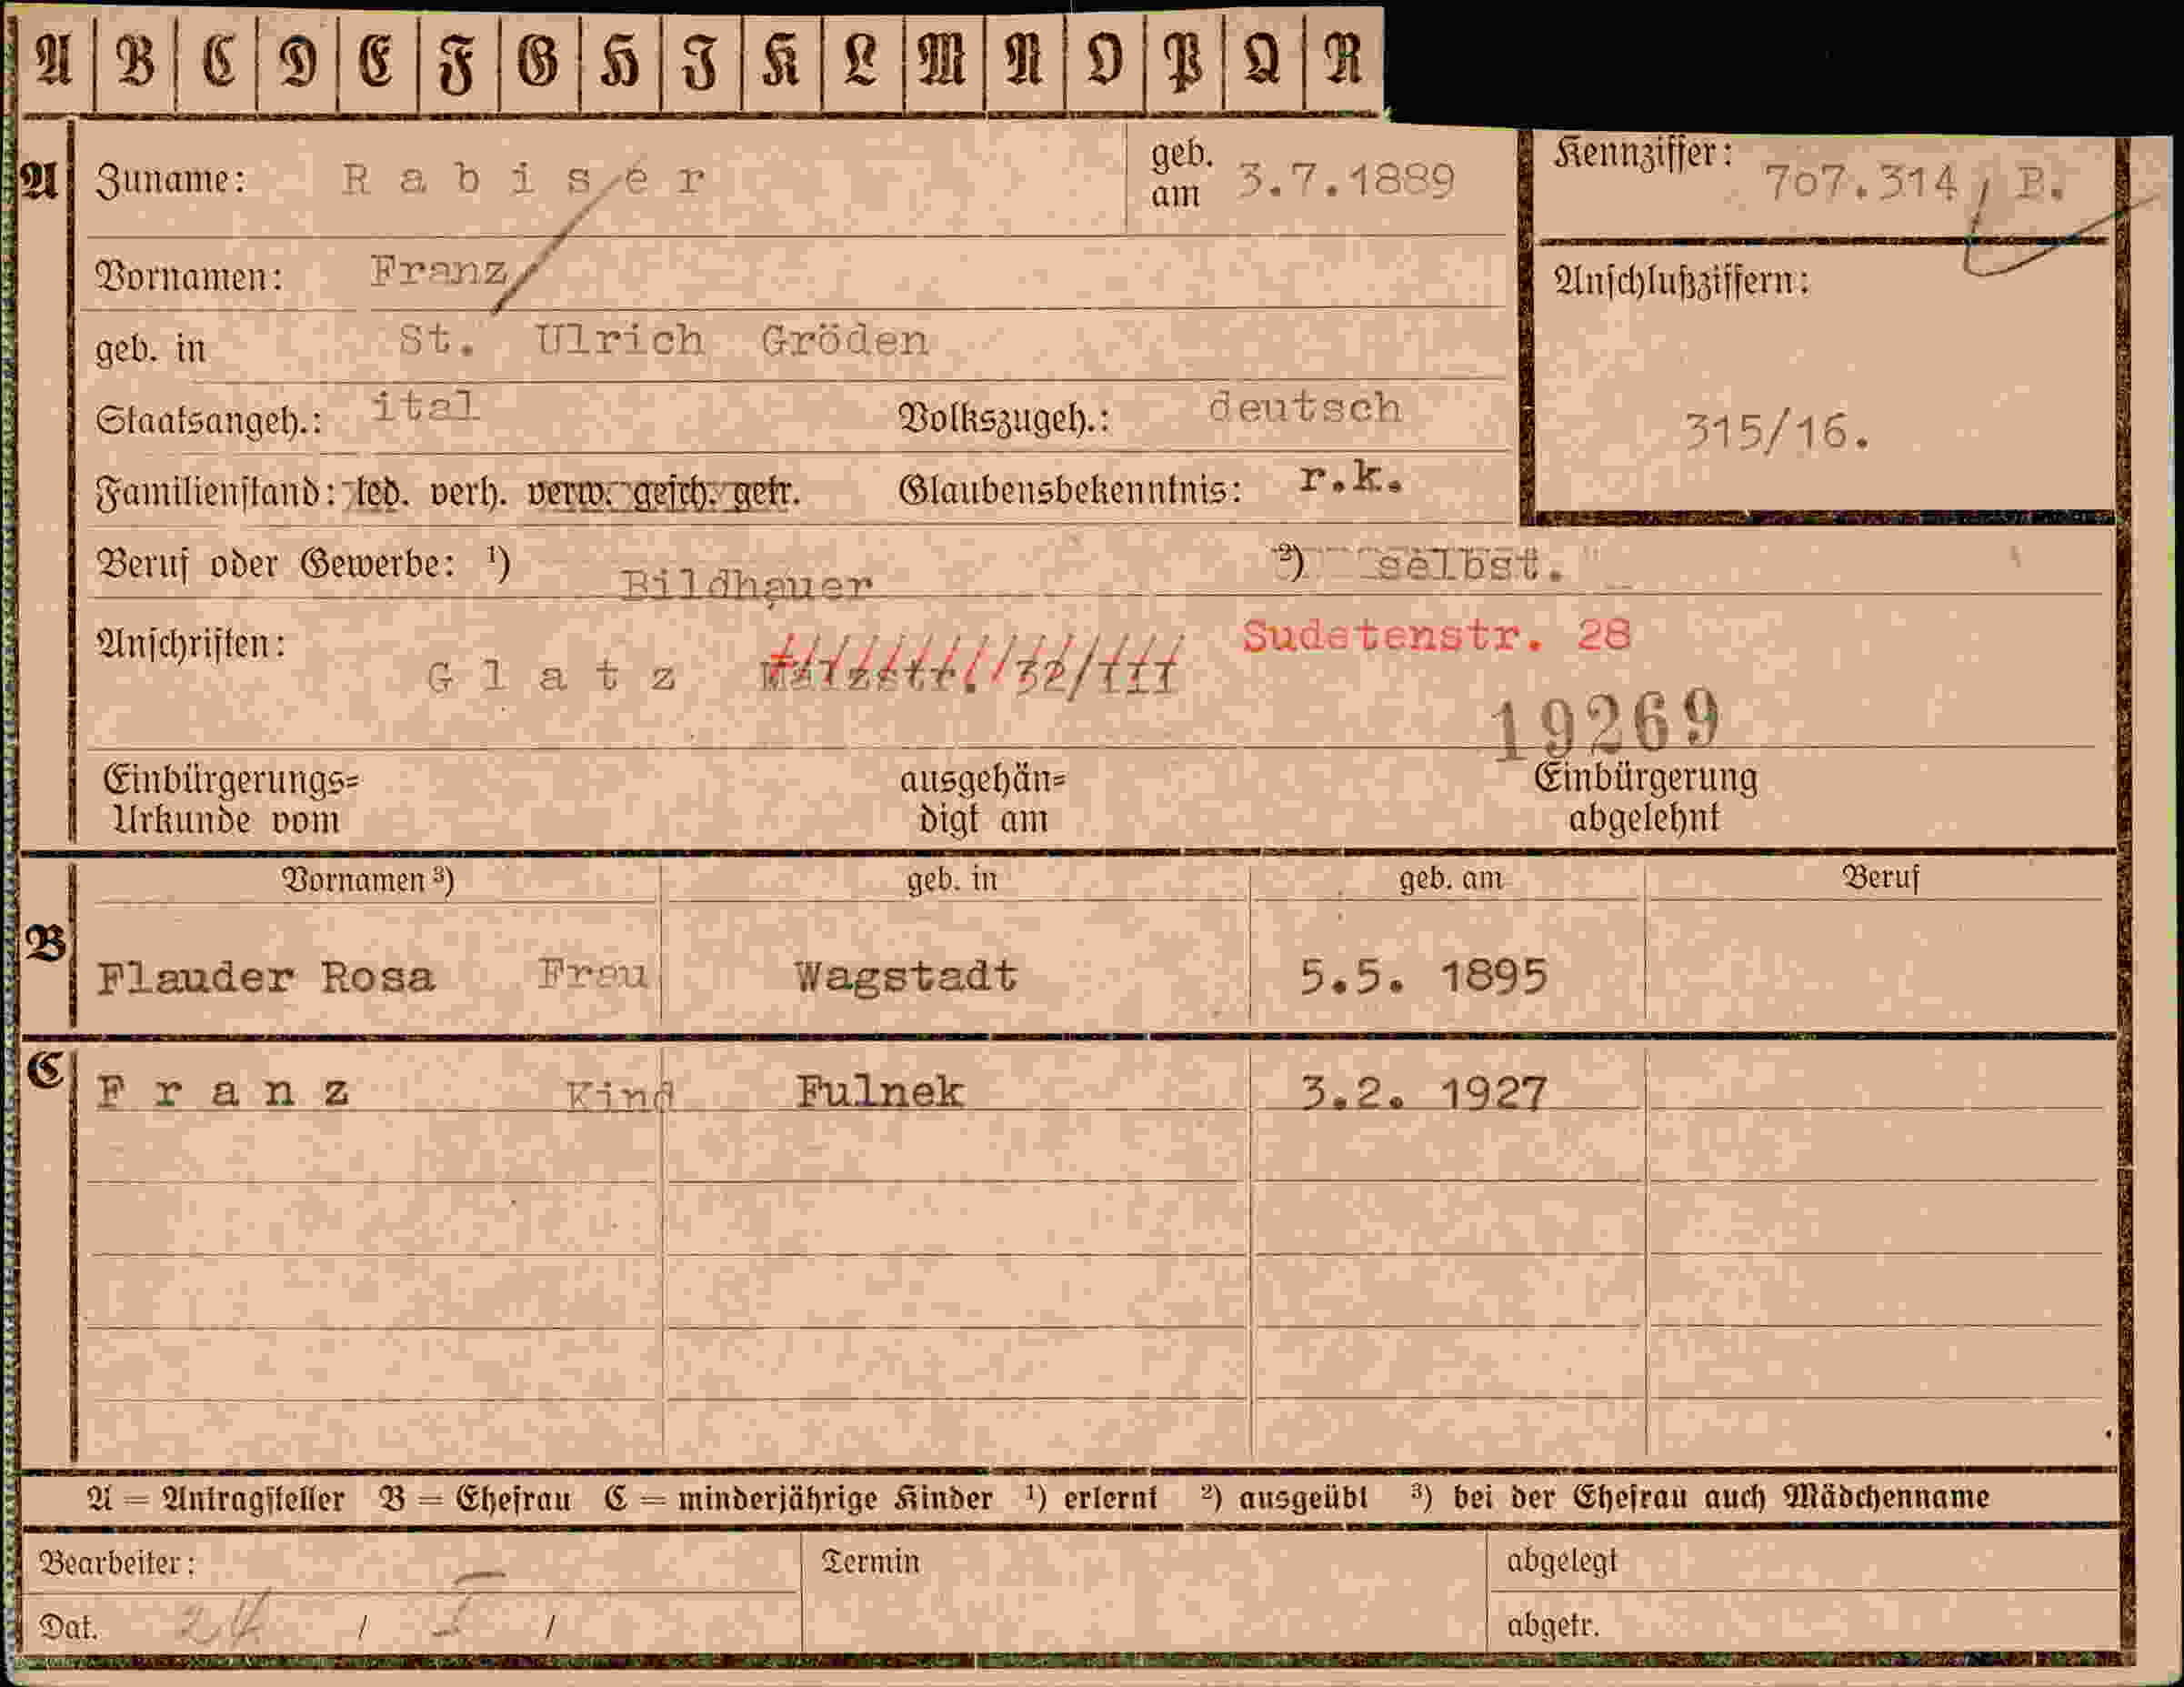 A B C D E F G H I K L M N O P Q R
A Zuname: Rabiser geb. am 3.7.1889 Kennziffer: 707.314, P.
Vornamen: Franz Anschlußziffern:
geb. in St. Ulrich Gröden
Staatsangeh.: ital Volkszugeh.: deutsch 315/16.
Familienstand: led. verh. verw. gesch. getr. Glaubensbekenntnis: r.k.
Beruf oder Gewerbe: ¹) Bildhauer ²) selbst.
Anschriften: Glatz 32/III Sudetenstr. 28
19269
Einbürgerungs= ausgehän= Einbürgerung
Urkunde vom digt am abgelehnt
Vornamen ³) geb. in geb. am Beruf
B Flauder Rosa Frau Wagstadt 5.5. 1895
C Franz Kind Fulnek 3.2. 1927
A = Antragsteller B = Ehefrau C = minderjährige Kinder ¹) erlernt ²) ausgeübt ³) bei der Ehefrau auch Mädchenname
Bearbeiter: Termin abgelegt
Dat. 24 / I / abgetr.